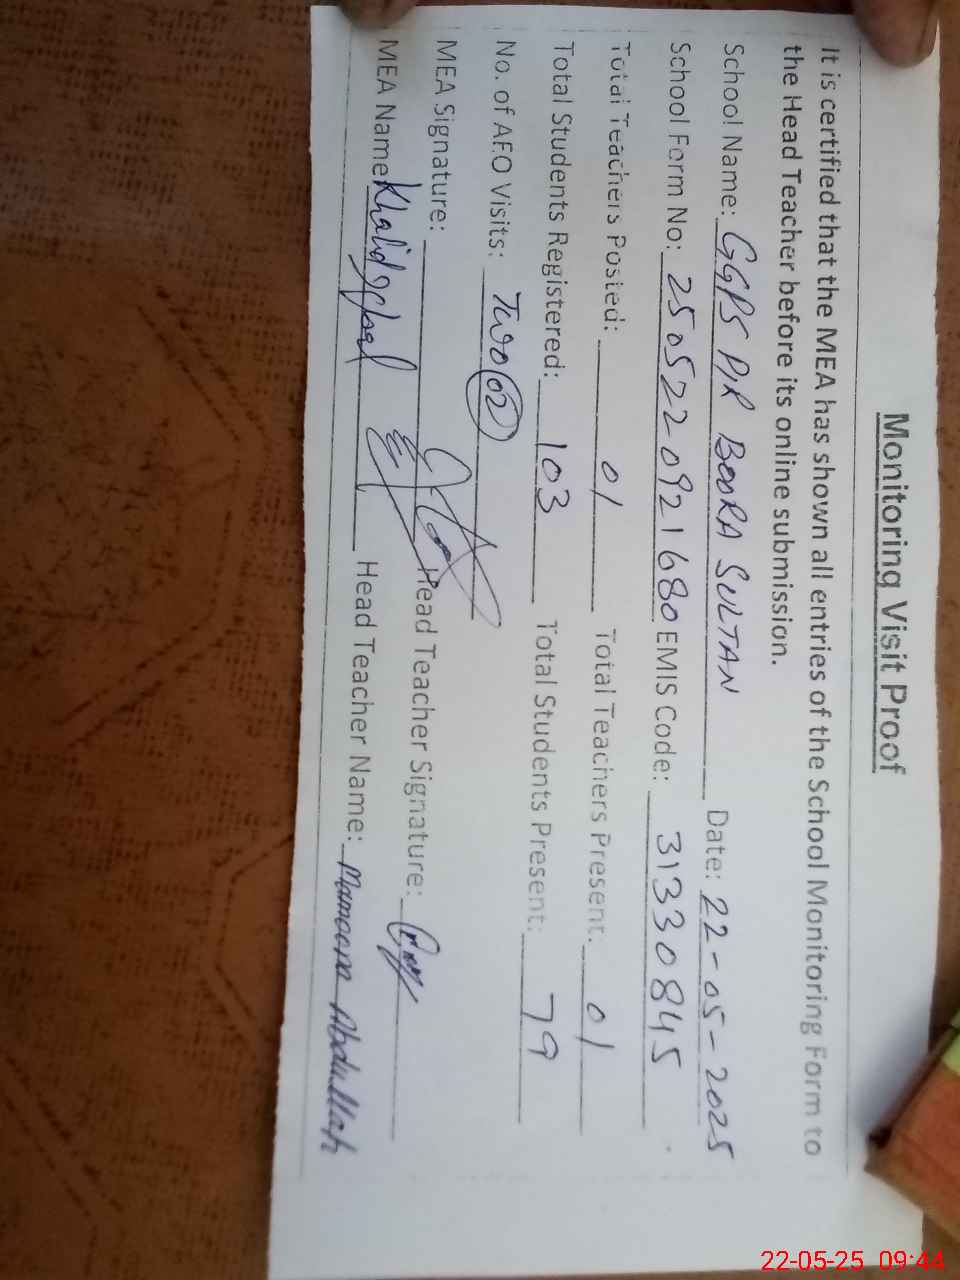 Monitoring Visit Proof
It is certified that the MEA has shown all entries of the School Monitoring Form to
the Head Teacher before its online submission.
School Name: GGPS PIR BOORA SULTAN Date: 22-05-2025
School Form No: 2505220921680 EMIS Code: 31330845
Total Teachers Posted: 01 Total Teachers Present: 01
Total Students Registered: 103 Total Students Present: 79
No. of AEO Visits: Two (02)
MEA Signature: Head Teacher Signature:
MEA Name: Khalid Iqbal Head Teacher Name: Mamoona Abdullah
22-05-25 09:44